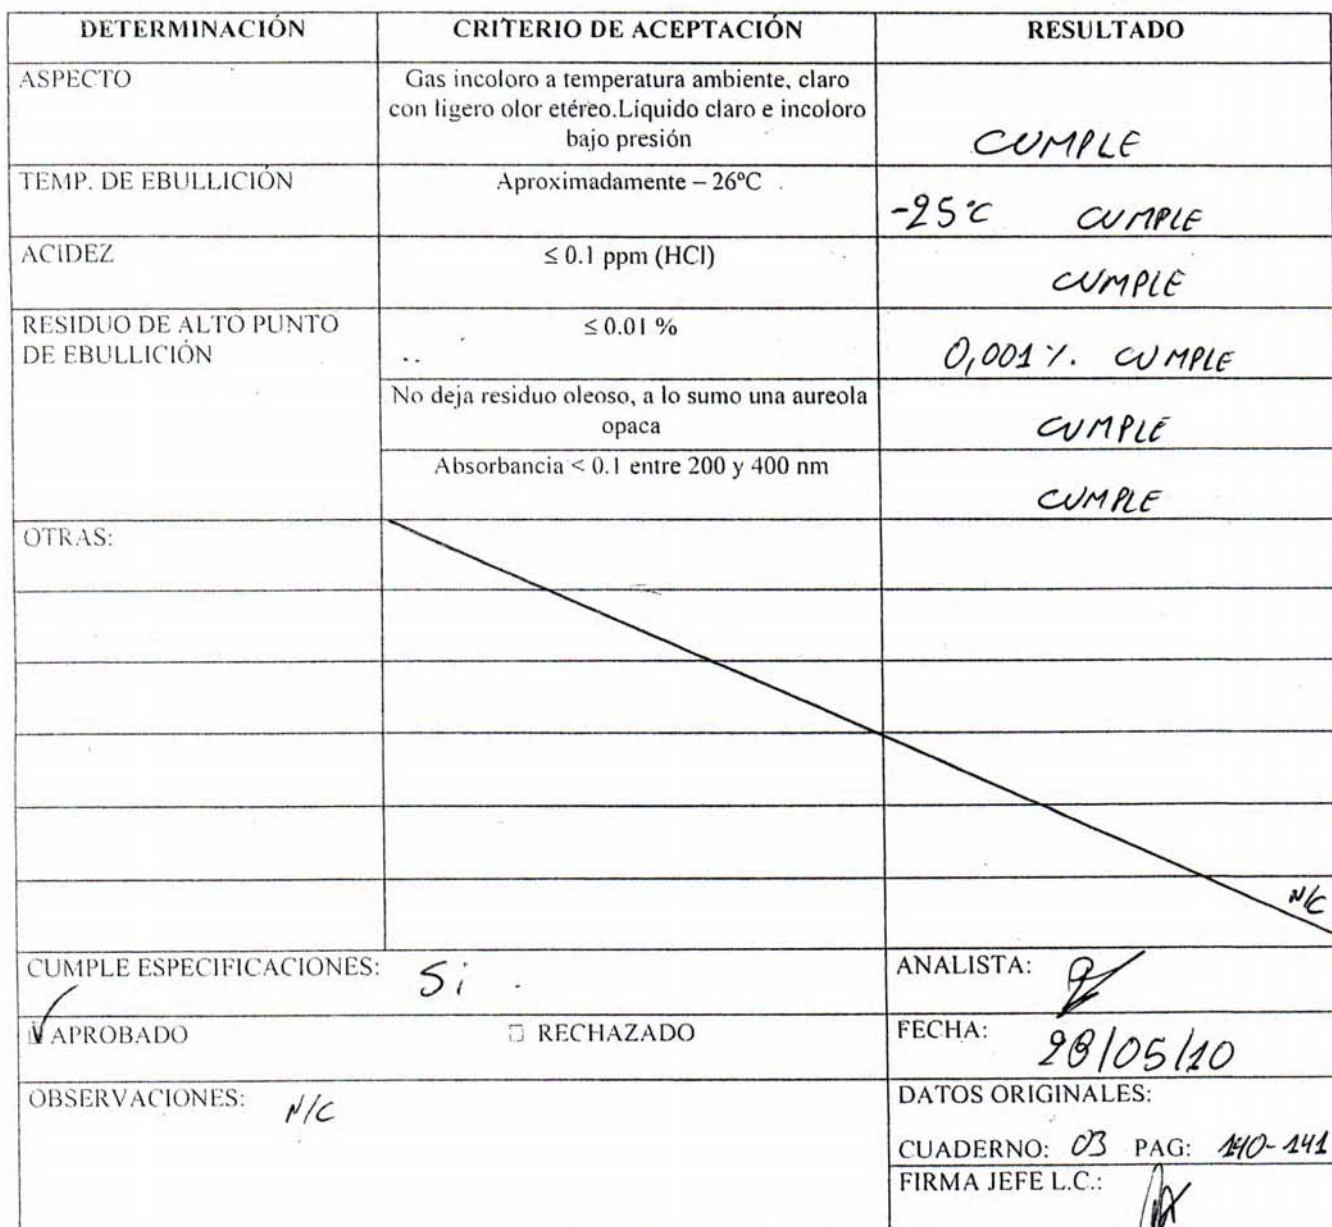 DETERMINACIÓN CRITERIO DE ACEPTACIÓN RESULTADO
ASPECTO
Gas incoloro a temperatura ambiente, claro
con ligero olor etéreo.Líquido claro e incoloro
bajo presión
CUMPLE
TEMP. DE EBULLICIÓN Aproximadamente – 26ºC
-25ºC CUMPLE
ACIDEZ ≤ 0.1 ppm (HCl)
CUMPLE
RESIDUO DE ALTO PUNTO
DE EBULLICIÓN
≤ 0.01 %
0,001 %. CUMPLE
No deja residuo oleoso, a lo sumo una aureola
opaca
CUMPLE
Absorbancia < 0.1 entre 200 y 400 nm
CUMPLE
OTRAS:
N/C
CUMPLE ESPECIFICACIONES: Si .
ANALISTA:
APROBADO RECHAZADO
FECHA:
OBSERVACIONES: N/C
DATOS ORIGINALES:
CUADERNO: 03 PAG: 140-141
FIRMA JEFE L.C.: